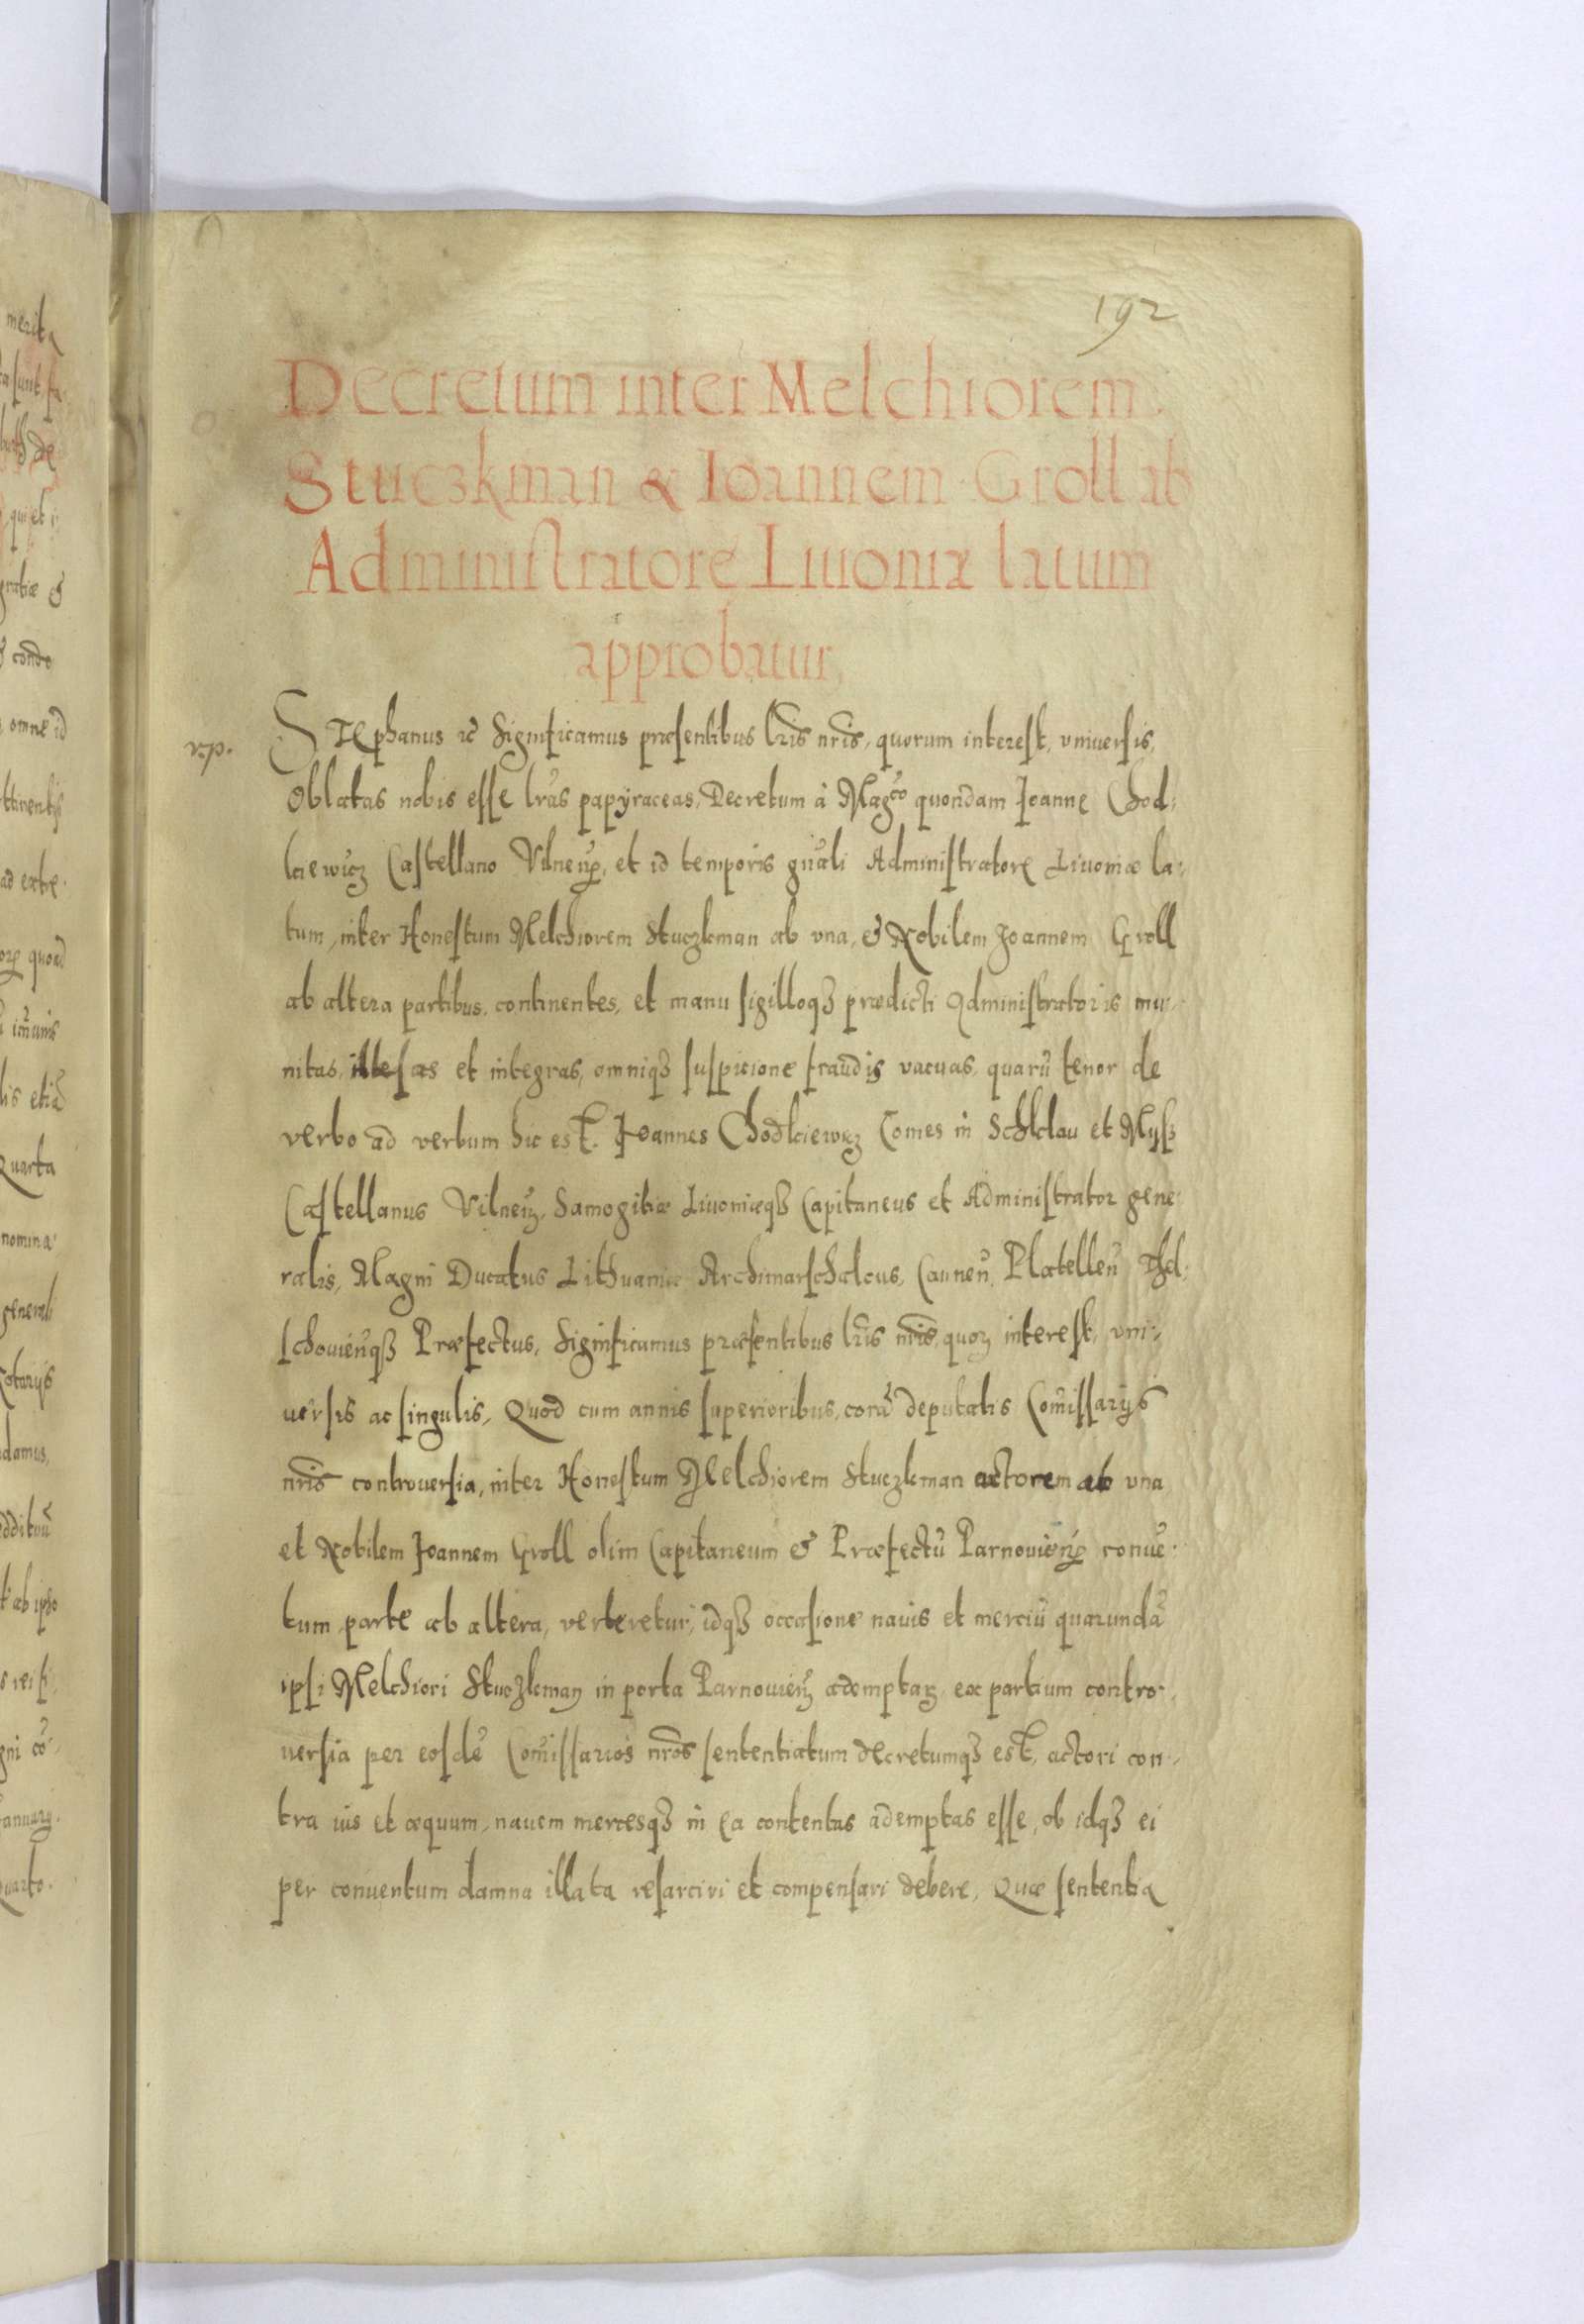 192
Decretum inter Melchiorem
Stuczkman & Ioannem Groll ab
Administratore Liuoniæ latum
approbatur,
STEphanus &c̃ Significamus præsentibus lr̃is nr̃is, quorum interest, vniuersis,
Oblatas nobis esse lr̃as papÿraceas, Decretum à Mag^co quondam Joanne Chod:
kiewicz Castellano Vilneñ, et id temporis gñali Administratore Liuoniæ la:
tum, inter Honestum Melchiorem Stuczkman ab vna, & Nobilem Joannem Groll
ab altera partibus, continentes, et manu sigilloqȝ prædicti Administratoris mu:
nitas, illesas et integras, omniqȝ suspicione fraudis vacuas, quarũ tenor de
verbo ad verbum hic est. Joannes Chodkiewicz Comes in Schklau et Mysz
Castellanus Vilneñ, Samogitiæ Liuoniæqȝ Capitaneus et Administrator gene
ralis, Magni Ducatus Lithuaniæ Archimarschalcus, Cauneñ, Platelleñ Thel:
schouieñqȝ Præfectus, Significamus præsentibus lr̃is nr̃is, quoꝝ interest, vni:
uersis ac singulis, Quod cum annis superioribus, corã deputatis Com̃issarijs
nr̃is controuersia, inter Honestum Melchiorem Stuczkman actorem ab vna
et Nobilem Joannem Groll olim Capitaneum & Præfectũ Parnouieñ conuẽ:
tum, parte ab altera, verteretur, idqȝ occasione nauis et merciũ quarundã
ipsi Melchiori Stuczkman in porta Parnouieñ ademptaꝝ, ex partium contro:
uersia per eosdẽ Com̃issarios nr̃os sententiatum decretumqȝ est, actori con:
tra ius et æquum, nauem mercesqȝ in ea contentas ademptas esse, ob idqȝ ei
per conuentum damna illata resarciri et compensari debere, Quæ sententia